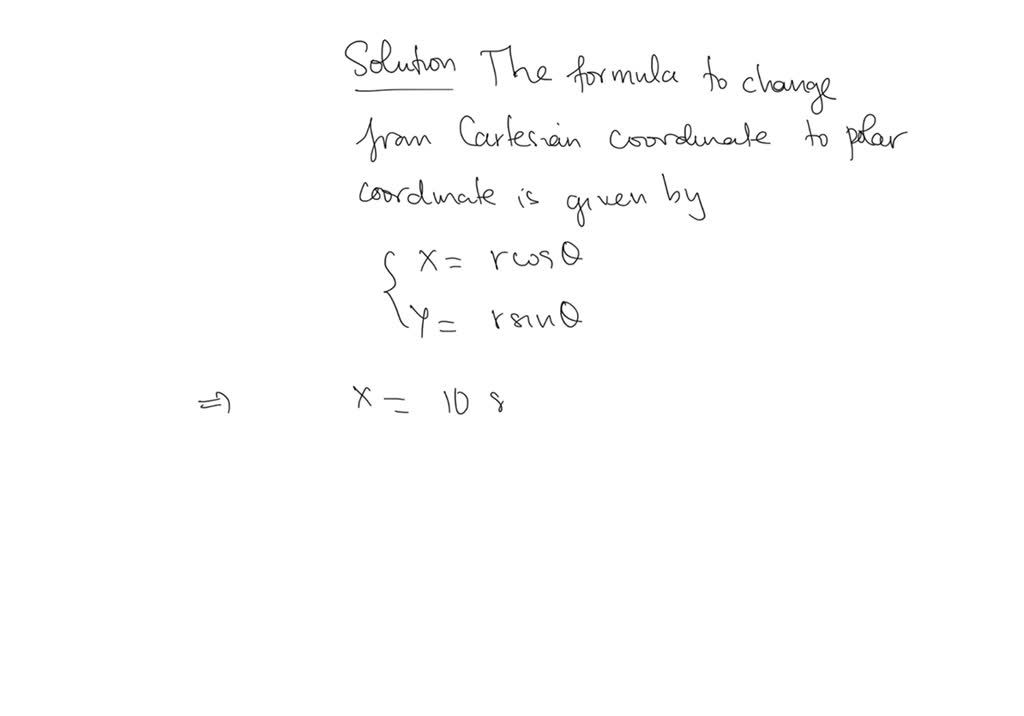 Solution The formula to change
from Cartesian coordinate to polar
coordinate is given by
{ x = r cos θ
y = r sin θ
⇒ x = 10 s